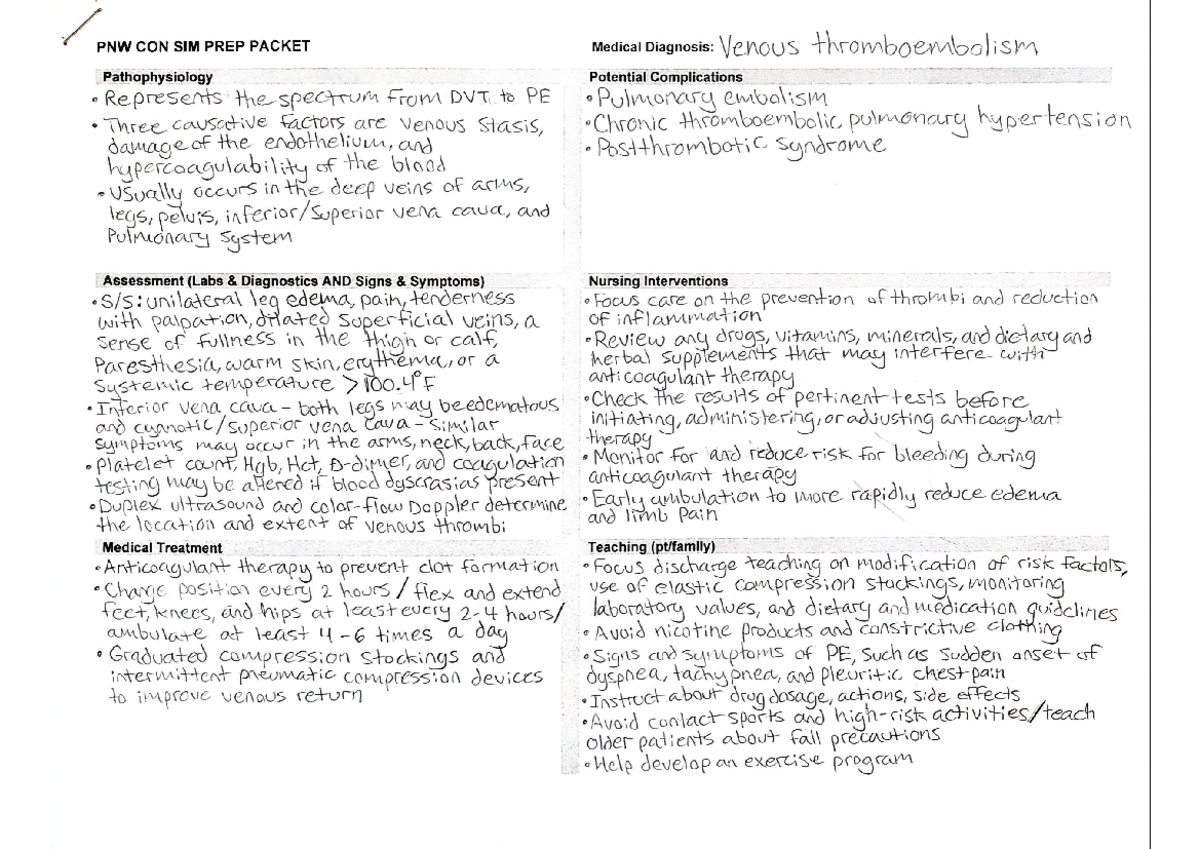 PNW CON SIM PREP PACKET
Medical Diagnosis: Venous thromboembolism
Pathophysiology
• Represents the spectrum from DVT to PE
• Three causative factors are venous stasis,
damage of the endothelium, and
hypercoagulability of the blood
• Usually occurs in the deep veins of arms,
legs, pelvis, inferior/superior vena cava, and
Pulmonary System
Potential Complications
• Pulmonary embolism
• Chronic thromboembolic pulmonary hypertension
• Postthrombotic syndrome
Assessment (Labs & Diagnostics AND Signs & Symptoms)
• S/S: unilateral leg edema, pain, tenderness
with palpation, dilated superficial veins, a
sense of fullness in the thigh or calf,
Paresthesia, warm skin, erythema, or a
systemic temperature >100.4°F
• Inferior vena cava - both legs may be edematous
and cyanotic/superior vena cava - similar
symptoms may occur in the arms, neck, back, face
• Platelet count, Hgb, Hct, D-dimer, and coagulation
testing may be altered if blood dyscrasias present
• Duplex ultrasound and color-flow Doppler determine
the location and extent of venous thrombi
Nursing Interventions
• Focus care on the prevention of thrombi and reduction
of inflammation
• Review any drugs, vitamins, minerals, and dietary and
herbal supplements that may interfere with
anticoagulant therapy
• Check the results of pertinent tests before
initiating, administering, or adjusting anticoagulant
therapy
• Monitor for and reduce risk for bleeding during
anticoagulant therapy
• Early ambulation to more rapidly reduce edema
and limb pain
Medical Treatment
• Anticoagulant therapy to prevent clot formation
• Change position every 2 hours / flex and extend
feet, knees, and hips at least every 2-4 hours/
ambulate at least 4-6 times a day
• Graduated compression stockings and
intermittent pneumatic compression devices
to improve venous return
Teaching (pt/family)
• Focus discharge teaching on modification of risk factors,
use of elastic compression stockings, monitoring
laboratory values, and dietary and medication guidelines
• Avoid nicotine products and constrictive clothing
• Signs and symptoms of PE, such as sudden onset of
dyspnea, tachypnea, and pleuritic chest pain
• Instruct about drug dosage, actions, side effects
• Avoid contact sports and high-risk activities/teach
older patients about fall precautions
• Help develop an exercise program